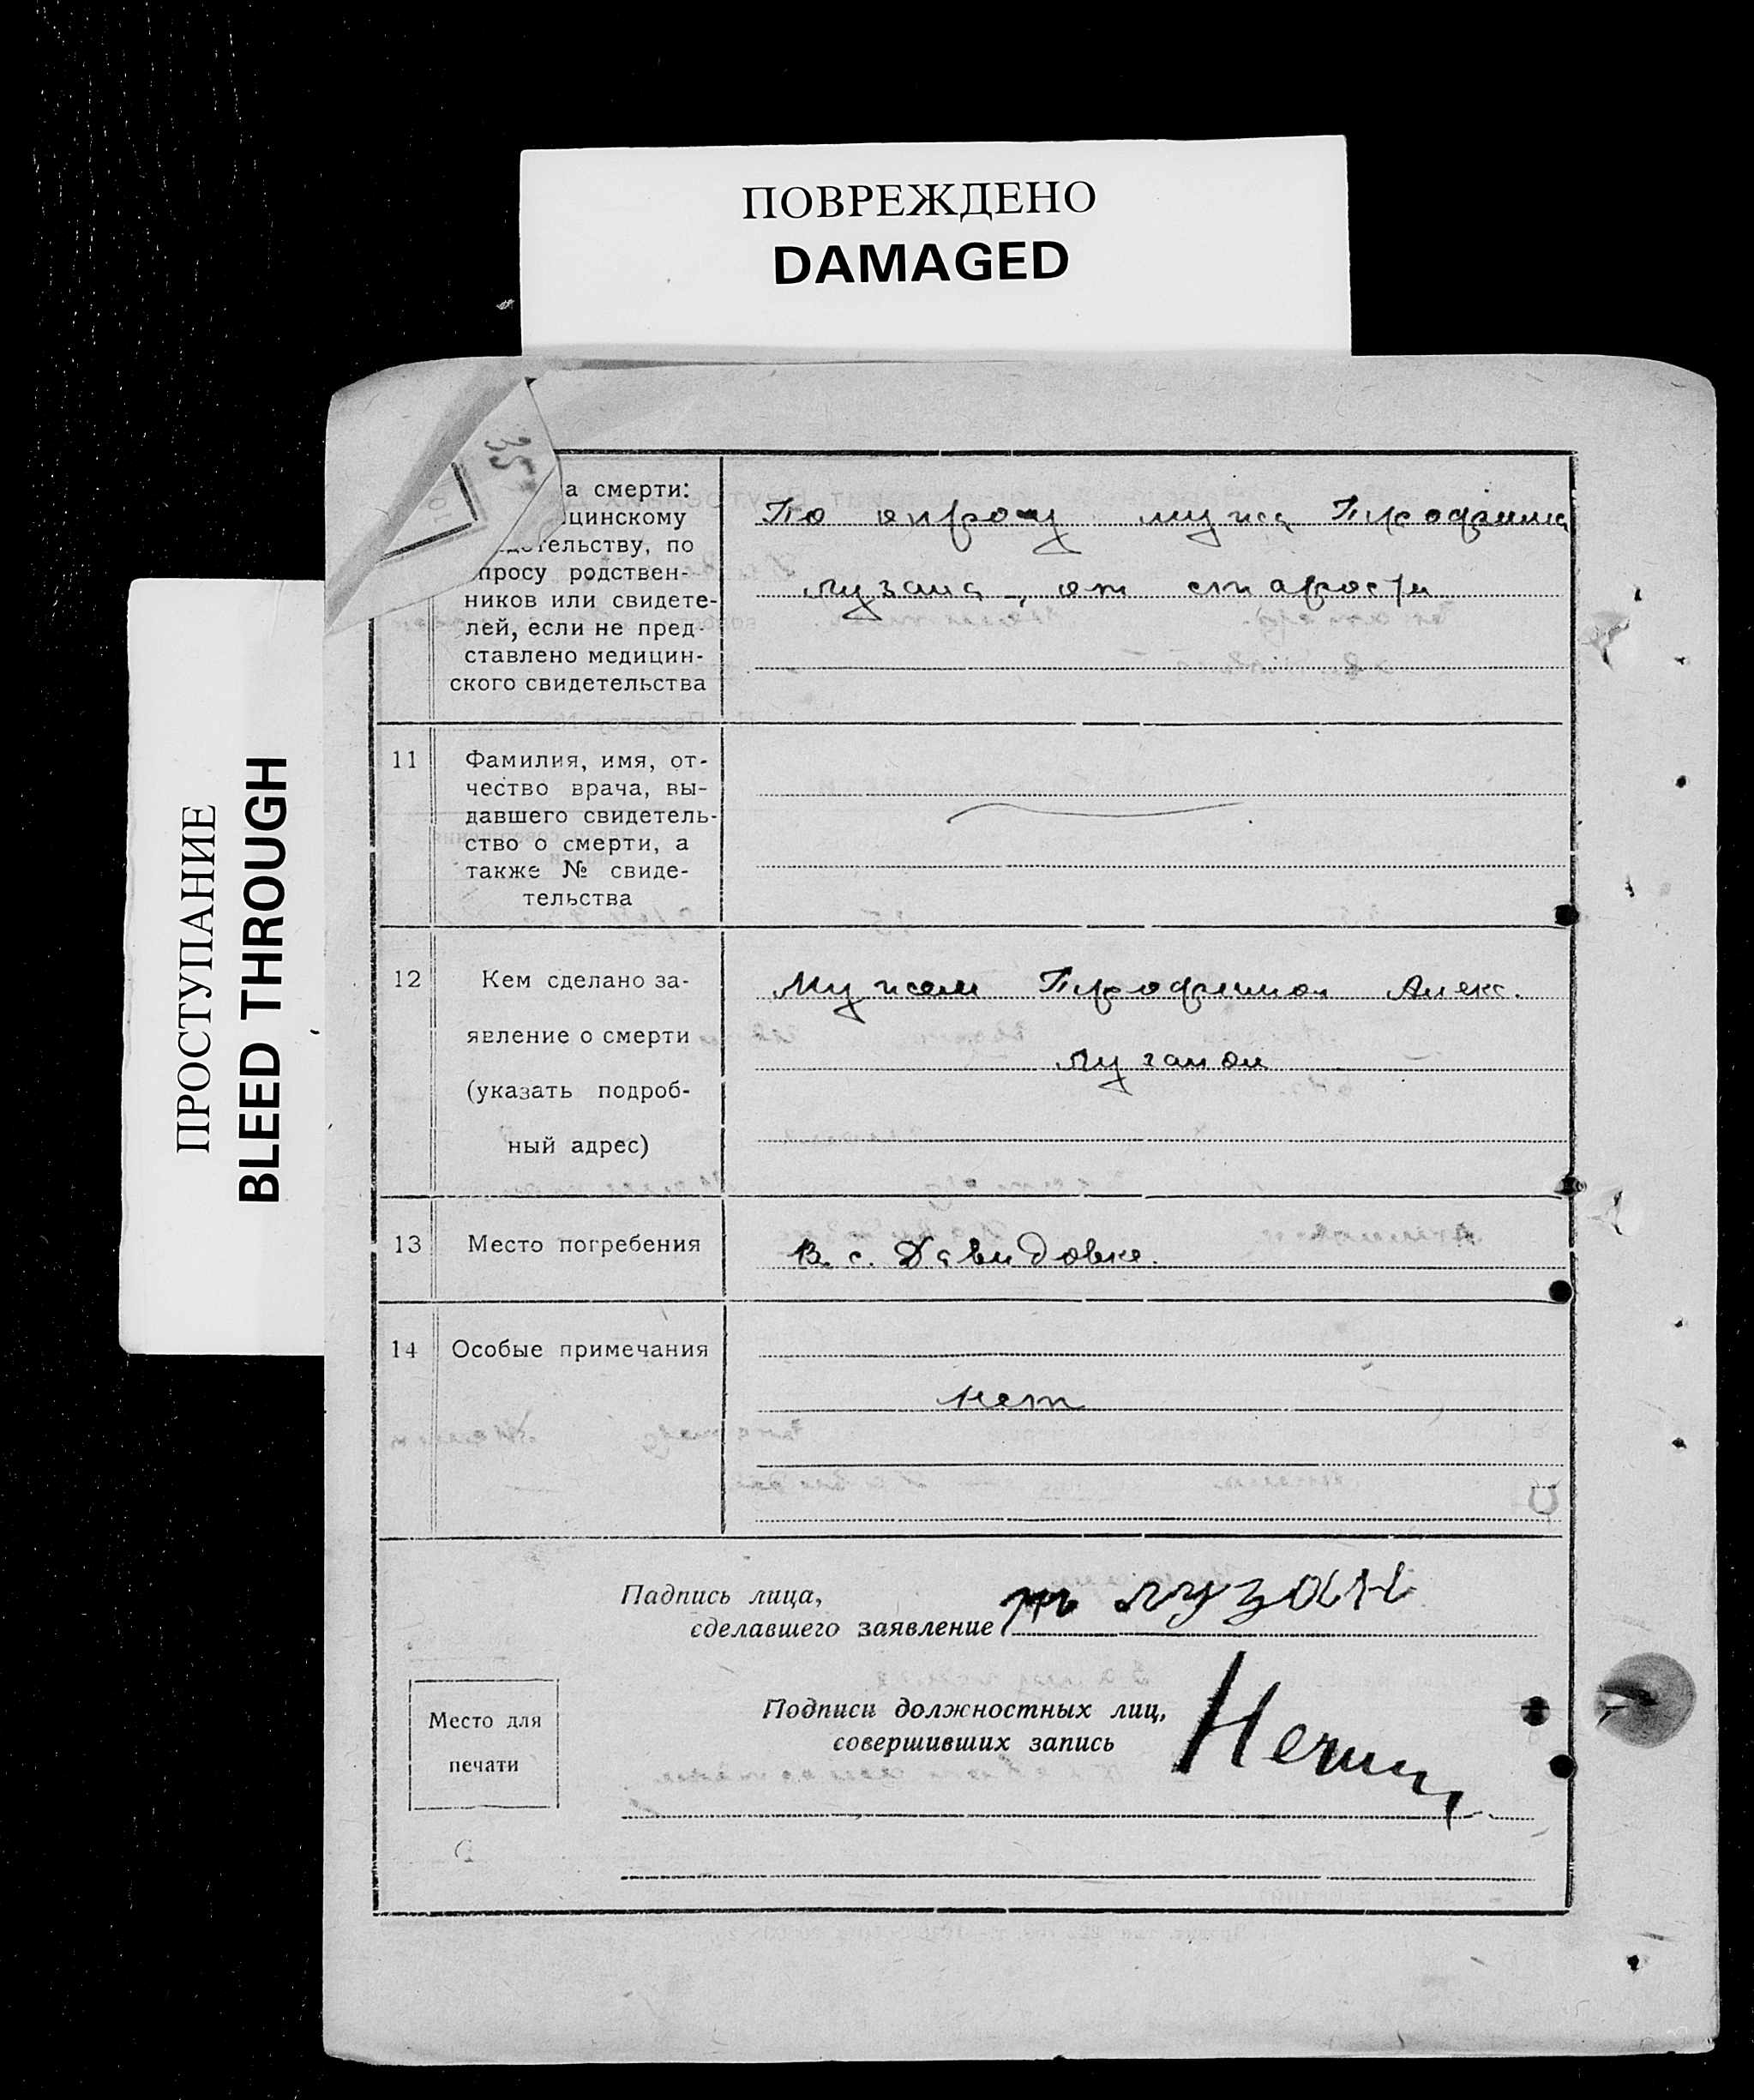 ПОВРЕЖДЕНО
DAMAGED
ПРОСТУПАНИЕ
BLEED THROUGH
35
а смерти:
цинскому
тельству, по
просу родствен-
ников или свидете-
лей, если не пред-
ставлено медицин-
ского свидетельства
По опросу мужа Трофима
Лузана, от старости
11
Фамилия, имя, от-
чество врача, вы-
давшего свидетель-
ство о смерти, а
также № свиде-
тельства
12
Кем сделано за-
явление о смерти
(указать подроб-
ный адрес)
Мужем Трофимом Алекс.
Лузаном
13
Место погребения
В с. Давидовке.
14
Особые примечания
нет
Падпись лица,
сделавшего заявление
лузан
Место для
печати
Подписи должностных лиц,
совершивших запись